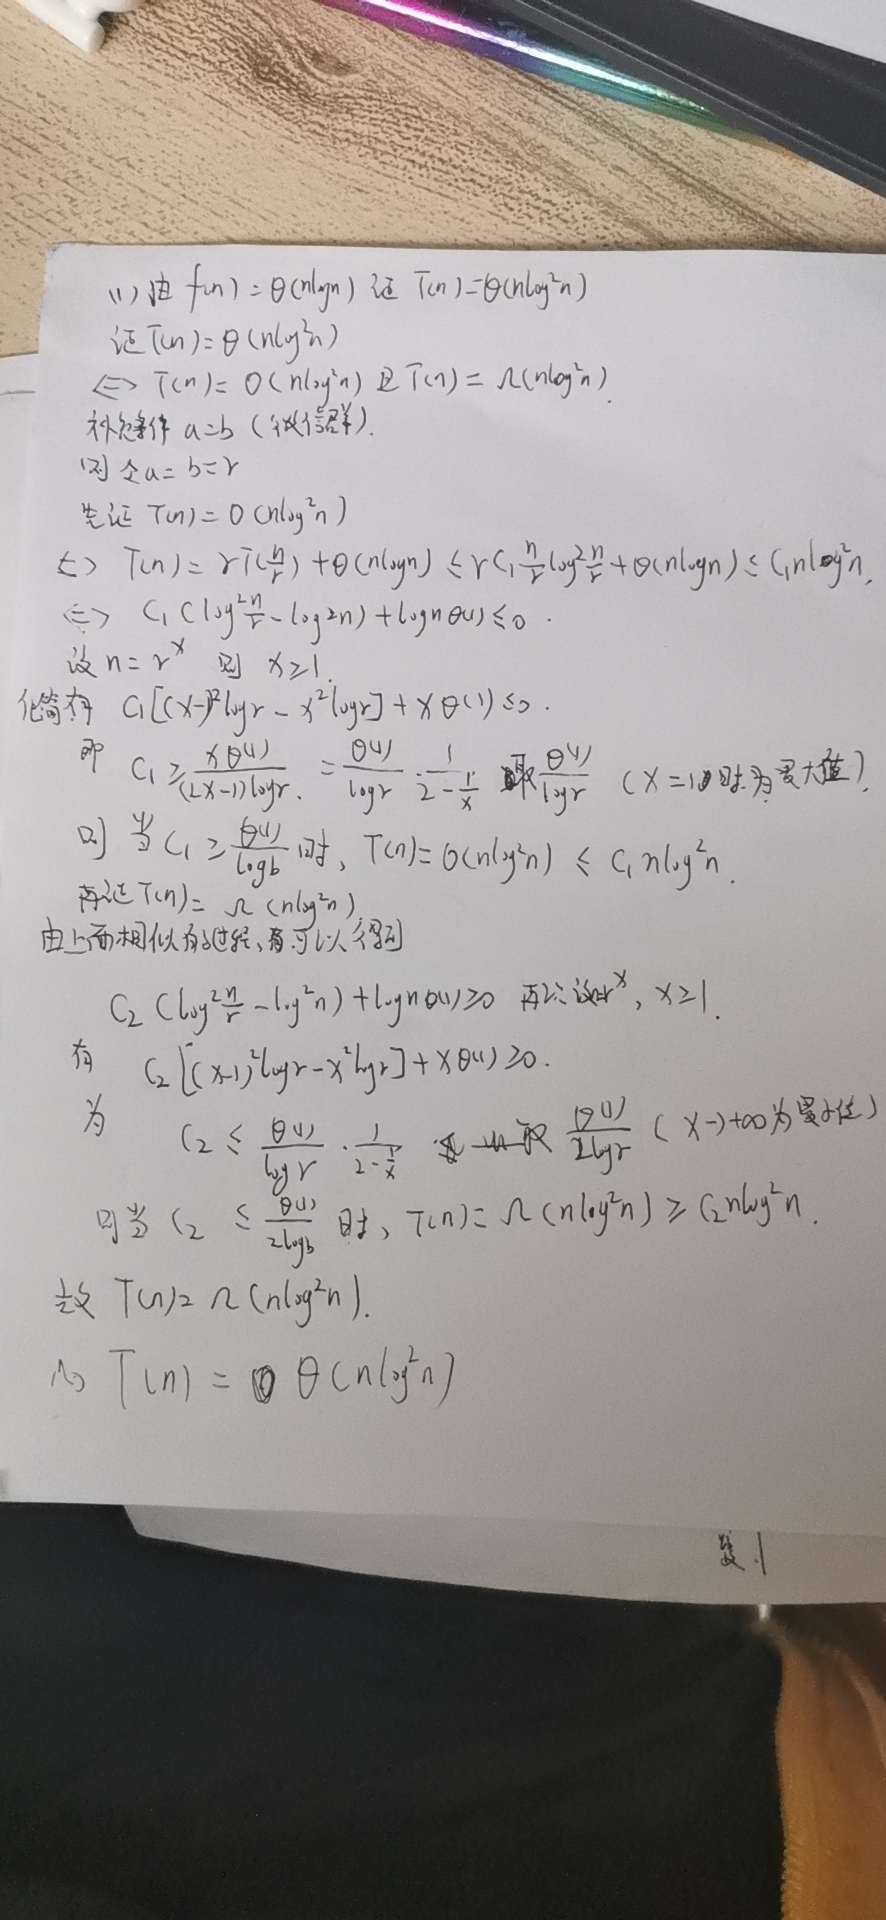 (1) 由 f(n) = θ(nlogn) 证 T(n)=θ(nlog²n)
证 T(n) = θ(nlog²n)
<=> T(n) = O(nlog²n) 且 T(n) = Ω(nlog²n).
补充条件 a=b (微信群).
则令a=b=r
先证 T(n) = O(nlog²n)
<=> T(n) = rT(n/r) + θ(nlogn) ≤ rC₁ n/r log² n/r + θ(nlogn) ≤ C₁nlog²n.
<=> C₁(log² n/r - log²n) + logn θ(1) ≤ 0.
设 n = r^x 则 x≥1.
化简有 C₁[(x-1)²logr - x²logr] + xθ(1) ≤ 0.
即 C₁ ≥ xθ(1)/(2x-1)logr. = θ(1)/logr · 1/(2-1/x) 取 θ(1)/logr (x=1时为最大值).
则当 C₁ ≥ θ(1)/logb 时, T(n) = O(nlog²n) ≤ C₁nlog²n.
再证 T(n) = Ω(nlog²n)
由上面相似的过程, 可以得到
C₂(log² n/r - log²n) + logn θ(1) ≥ 0 再次设 r^x, x≥1.
有 C₂[(x-1)²logr - x²logr] + xθ(1) ≥ 0.
为 C₂ ≤ θ(1)/logr · 1/(2-1/x) 取 θ(1)/2logr (x→+∞为最小值)
则当 C₂ ≤ θ(1)/2logb 时, T(n) = Ω(nlog²n) ≥ C₂nlog²n.
故 T(n) = Ω(nlog²n).
T(n) = θ(nlog²n)